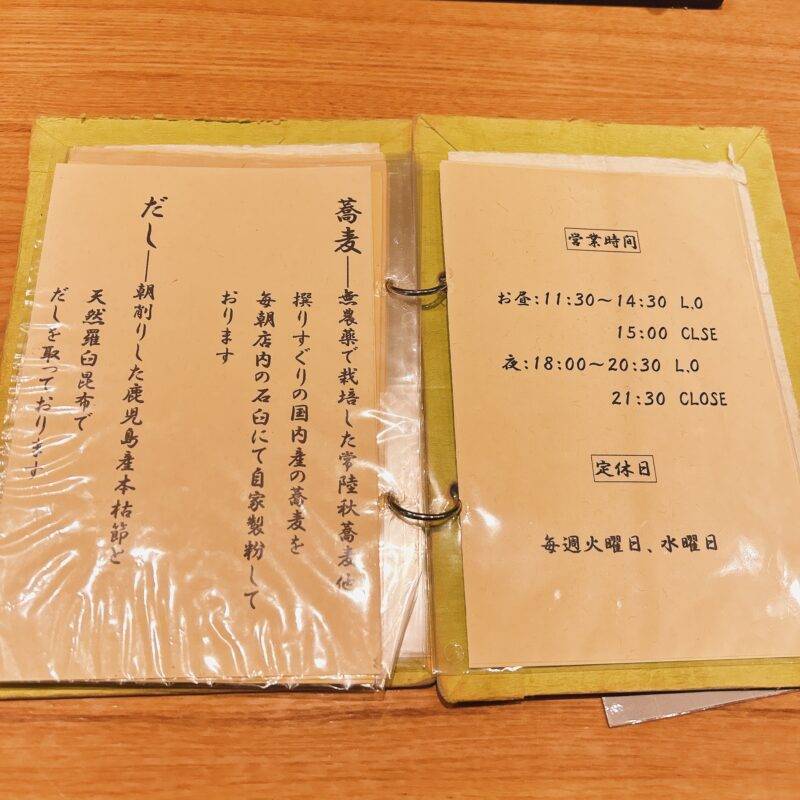 蕎麦―無農薬で栽培した常陸秋蕎麦他
撰りすぐりの国内産の蕎麦を
毎朝店内の石臼にて自家製粉して
おります
だし―朝削りした鹿児島産本枯節と
天然羅臼昆布で
だしを取っております
営業時間
お昼:11:30～14:30 L.O
15:00 CLSE
夜:18:00～20:30 L.O
21:30 CLOSE
定休日
毎週火曜日、水曜日